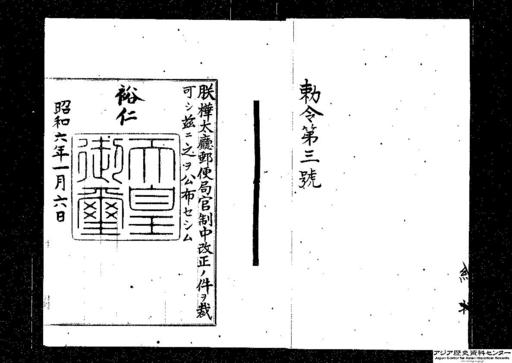 勅令第三號
朕樺太廳郵便局官制中改正ノ件ヲ裁
可シ玆ニ之ヲ公布セシム
裕仁
天皇
御璽
昭和六年一月六日
アジア歴史資料センター
Japan Center for Asian Historical Records